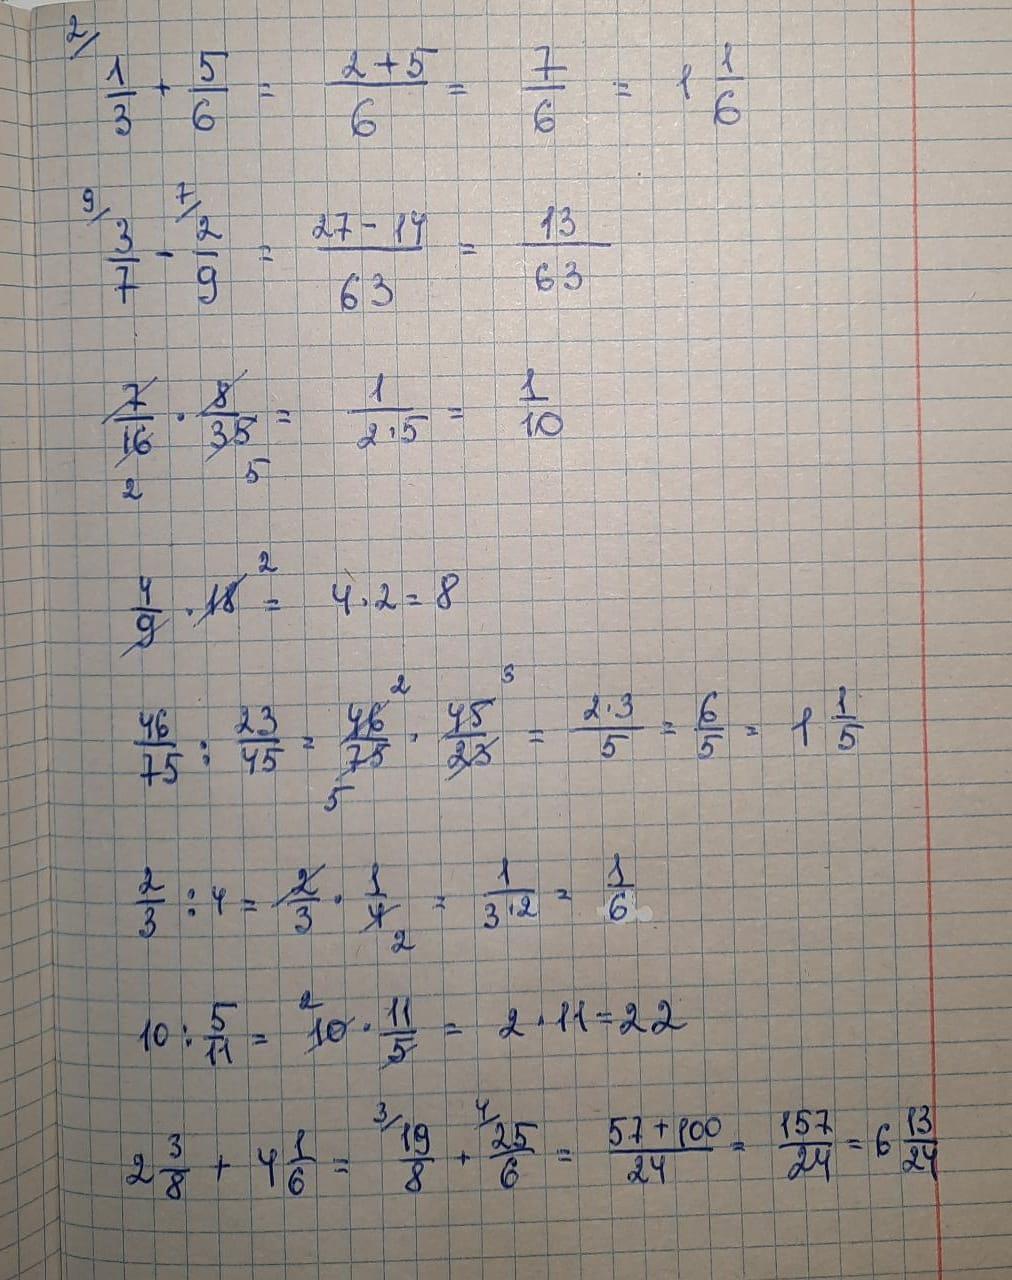 2/ 1/3 + 5/6 = (2+5)/6 = 7/6 = 1 1/6
9/ 3/7 - 7/ 2/9 = (27-14)/63 = 13/63
7/16 · 8/35 = 1/(2·5) = 1/10
2 5
4/9 · 18 2 = 4·2=8
46/75 : 23/45 = 46 2/75 5 · 45 3/23 = 2·3/5 = 6/5 = 1 1/5
2/3 : 4 = 2/3 · 1/4 2 = 1/(3·2) = 1/6
10 : 5/11 = 2 10 · 11/5 = 2·11=22
2 3/8 + 4 1/6 = 3/ 19/8 + 4/ 25/6 = (57+100)/24 = 157/24 = 6 13/24